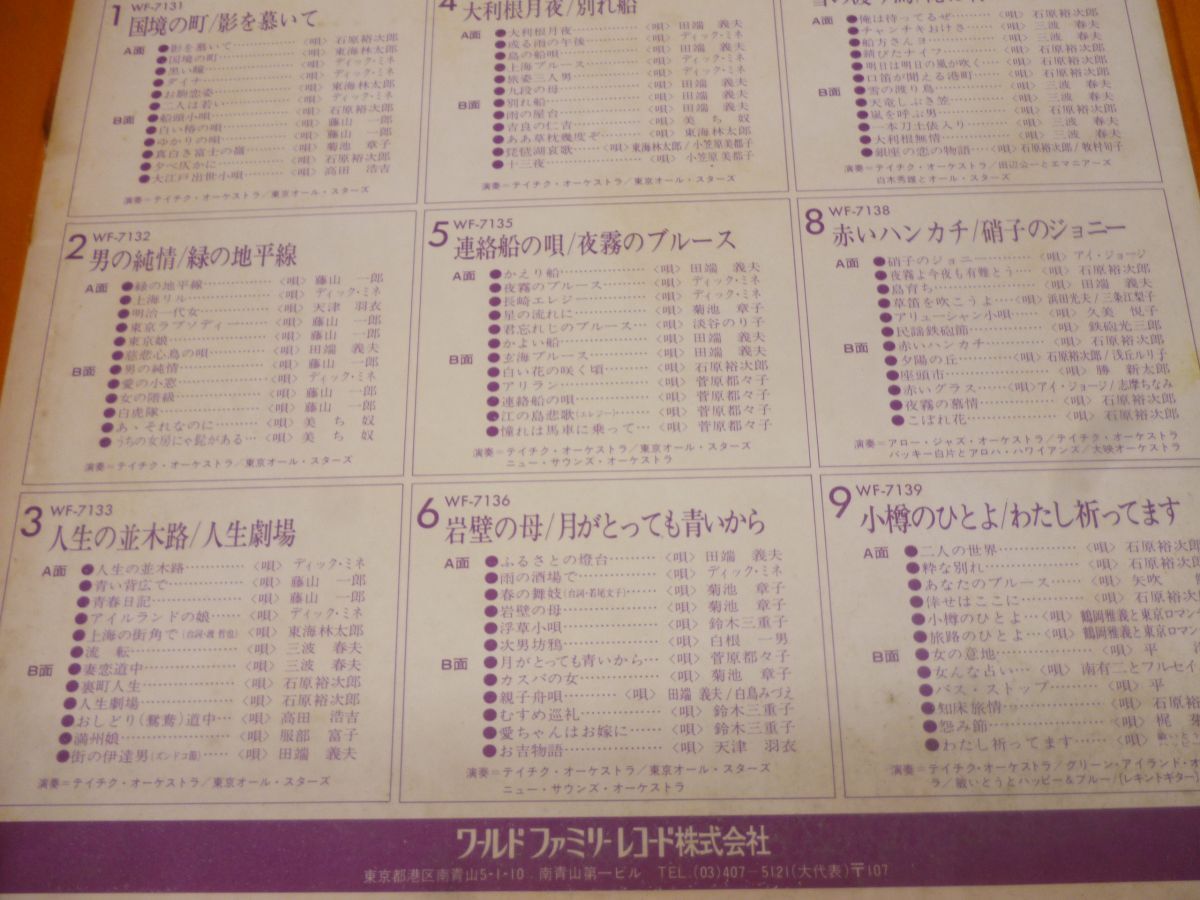 1 WF-7131
国境の町/影を慕いて
A面 ●影を慕いて〈唄〉石原裕次郎
●国境の町〈唄〉東海林太郎
●黒い瞳〈唄〉ディック・ミネ
●ダイナ〈唄〉ディック・ミネ
●お駒恋姿〈唄〉東海林太郎
●二人は若い〈唄〉ディック・ミネ
B面 ●船頭小唄〈唄〉石原裕次郎
●白い椿の唄〈唄〉藤山 一郎
●ゆかりの唄〈唄〉藤山 一郎
●真白き富士の嶺〈唄〉菊池 章子
●夕べ仄かに〈唄〉石原裕次郎
●大江戸出世小唄〈唄〉高田 浩吉
演奏=テイチク・オーケストラ/東京オール・スターズ
2 WF-7132
男の純情/緑の地平線
A面 ●緑の地平線〈唄〉藤山 一郎
●上海リル〈唄〉ディック・ミネ
●明治一代女〈唄〉天津 羽衣
●東京ラプソディー〈唄〉藤山 一郎
●東京娘〈唄〉藤山 一郎
●慈悲心鳥の唄〈唄〉田端 義夫
B面 ●男の純情〈唄〉藤山 一郎
●愛の小窓〈唄〉ディック・ミネ
●女の階級〈唄〉藤山 一郎
●白虎隊〈唄〉藤山 一郎
●あゝそれなのに〈唄〉美ち奴
●うちの女房にゃ髭がある〈唄〉美ち奴
演奏=テイチク・オーケストラ/東京オール・スターズ
3 WF-7133
人生の並木路/人生劇場
A面 ●人生の並木路〈唄〉ディック・ミネ
●青い背広で〈唄〉藤山 一郎
●青春日記〈唄〉藤山 一郎
●アイルランドの娘〈唄〉ディック・ミネ
●上海の街角で(台詞・渡 哲也)〈唄〉東海林太郎
●流 転〈唄〉三波 春夫
B面 ●妻恋道中〈唄〉三波 春夫
●裏町人生〈唄〉石原裕次郎
●人生劇場〈唄〉石原裕次郎
●おしどり(鴛鴦)道中〈唄〉高田 浩吉
●満州娘〈唄〉服部 富子
●街の伊達男(ズンドコ節)〈唄〉田端 義夫
演奏=テイチク・オーケストラ/東京オール・スターズ
4 大利根月夜/別れ船
A面 ●大利根月夜〈唄〉田端 義夫
●或る雨の午後〈唄〉ディック・ミネ
●島の船唄〈唄〉田端 義夫
●上海ブルース〈唄〉ディック・ミネ
●旅姿三人男〈唄〉ディック・ミネ
●九段の母〈唄〉田端 義夫
B面 ●別れ船〈唄〉田端 義夫
●雨の屋台〈唄〉田端 義夫
●吉良の仁吉〈唄〉美ち奴
●ああ草枕幾度ぞ〈唄〉東海林太郎
●琵琶湖哀歌〈唄〉東海林太郎/小笠原美都子
●十三夜〈唄〉小笠原美都子
演奏=テイチク・オーケストラ/東京オール・スターズ
5 WF-7135
連絡船の唄/夜霧のブルース
A面 ●かえり船〈唄〉田端 義夫
●夜霧のブルース〈唄〉ディック・ミネ
●長崎エレジー〈唄〉ディック・ミネ
●星の流れに〈唄〉菊池 章子
●君忘れじのブルース〈唄〉淡谷のり子
●かよい船〈唄〉田端 義夫
B面 ●玄海ブルース〈唄〉田端 義夫
●白い花の咲く頃〈唄〉石原裕次郎
●アリラン〈唄〉菅原都々子
●連絡船の唄〈唄〉菅原都々子
●江の島悲歌(エレジー)〈唄〉菅原都々子
●憧れは馬車に乗って〈唄〉菅原都々子
演奏=テイチク・オーケストラ/東京オール・スターズ
ニュー・サウンズ・オーケストラ
6 WF-7136
岩壁の母/月がとっても青いから
A面 ●ふるさとの燈台〈唄〉田端 義夫
●雨の酒場で〈唄〉ディック・ミネ
●春の舞妓(台詞・若尾文子)〈唄〉菊池 章子
●岩壁の母〈唄〉菊池 章子
●浮草小唄〈唄〉鈴木三重子
●次男坊鴉〈唄〉白根 一男
B面 ●月がとっても青いから〈唄〉菅原都々子
●カスバの女〈唄〉菊池 章子
●親子舟唄〈唄〉田端 義夫/白鳥みづえ
●むすめ巡礼〈唄〉鈴木三重子
●愛ちゃんはお嫁に〈唄〉鈴木三重子
●お吉物語〈唄〉天津 羽衣
演奏=テイチク・オーケストラ/東京オール・スターズ
ニュー・サウンズ・オーケストラ
A面 ●俺は待ってるぜ〈唄〉石原裕次郎
●チャンチキおけさ〈唄〉三波 春夫
●船方さんヨ〈唄〉三波 春夫
●錆びたナイフ〈唄〉石原裕次郎
●明日は明日の風が吹く〈唄〉石原裕次郎
●口笛が聞える港町〈唄〉石原裕次郎
B面 ●雪の渡り鳥〈唄〉三波 春夫
●天竜しぶき笠〈唄〉三波 春夫
●嵐を呼ぶ男〈唄〉石原裕次郎
●一本刀土俵入り〈唄〉三波 春夫
●大利根無情〈唄〉三波 春夫
●銀座の恋の物語〈唄〉石原裕次郎/牧村旬子
演奏=テイチク・オーケストラ/田辺公一とエマニアーズ
白木秀雄とオール・スターズ
8 WF-7138
赤いハンカチ/硝子のジョニー
A面 ●硝子のジョニー〈唄〉アイ・ジョージ
●夜霧よ今夜も有難とう〈唄〉石原裕次郎
●島育ち〈唄〉田端 義夫
●草笛を吹こうよ〈唄〉浜田光夫/三条江梨子
●アリューシャン小唄〈唄〉久美 悦子
●民謡鉄砲節〈唄〉鉄砲光三郎
B面 ●赤いハンカチ〈唄〉石原裕次郎
●夕陽の丘〈唄〉石原裕次郎/浅丘ルリ子
●座頭市〈唄〉勝 新太郎
●赤いグラス〈唄〉アイ・ジョージ/志摩ちなみ
●夜霧の慕情〈唄〉石原裕次郎
●こぼれ花〈唄〉石原裕次郎
演奏=アロー・ジャズ・オーケストラ/テイチク・オーケストラ
バッキー白片とアロハ・ハワイアンズ/大映オーケストラ
9 WF-7139
小樽のひとよ/わたし祈ってます
A面 ●二人の世界〈唄〉石原裕次郎
●粋な別れ〈唄〉石原裕次郎
●あなたのブルース〈唄〉矢吹
●倖せはここに〈唄〉石原裕次
●小樽のひとよ〈唄〉鶴岡雅義と東京ロマン
●旅路のひとよ〈唄〉鶴岡雅義と東京ロマン
B面 ●女の意地〈唄〉平
●女んな占い〈唄〉南有二とフルセイ
●バス・ストップ〈唄〉平
●知床旅情〈唄〉石原裕
●怨み節〈唄〉梶
●わたし祈ってます〈唄〉敏いとう
演奏=テイチク・オーケストラ/グリーン・アイランド・オ
ラ/敏いとうとハッピー&ブルー/(レキントギター)
ワールドファミリーレコード株式会社
東京都港区南青山5-1-10.南青山第一ビル TEL.(03)407-5121(大代表)〒107